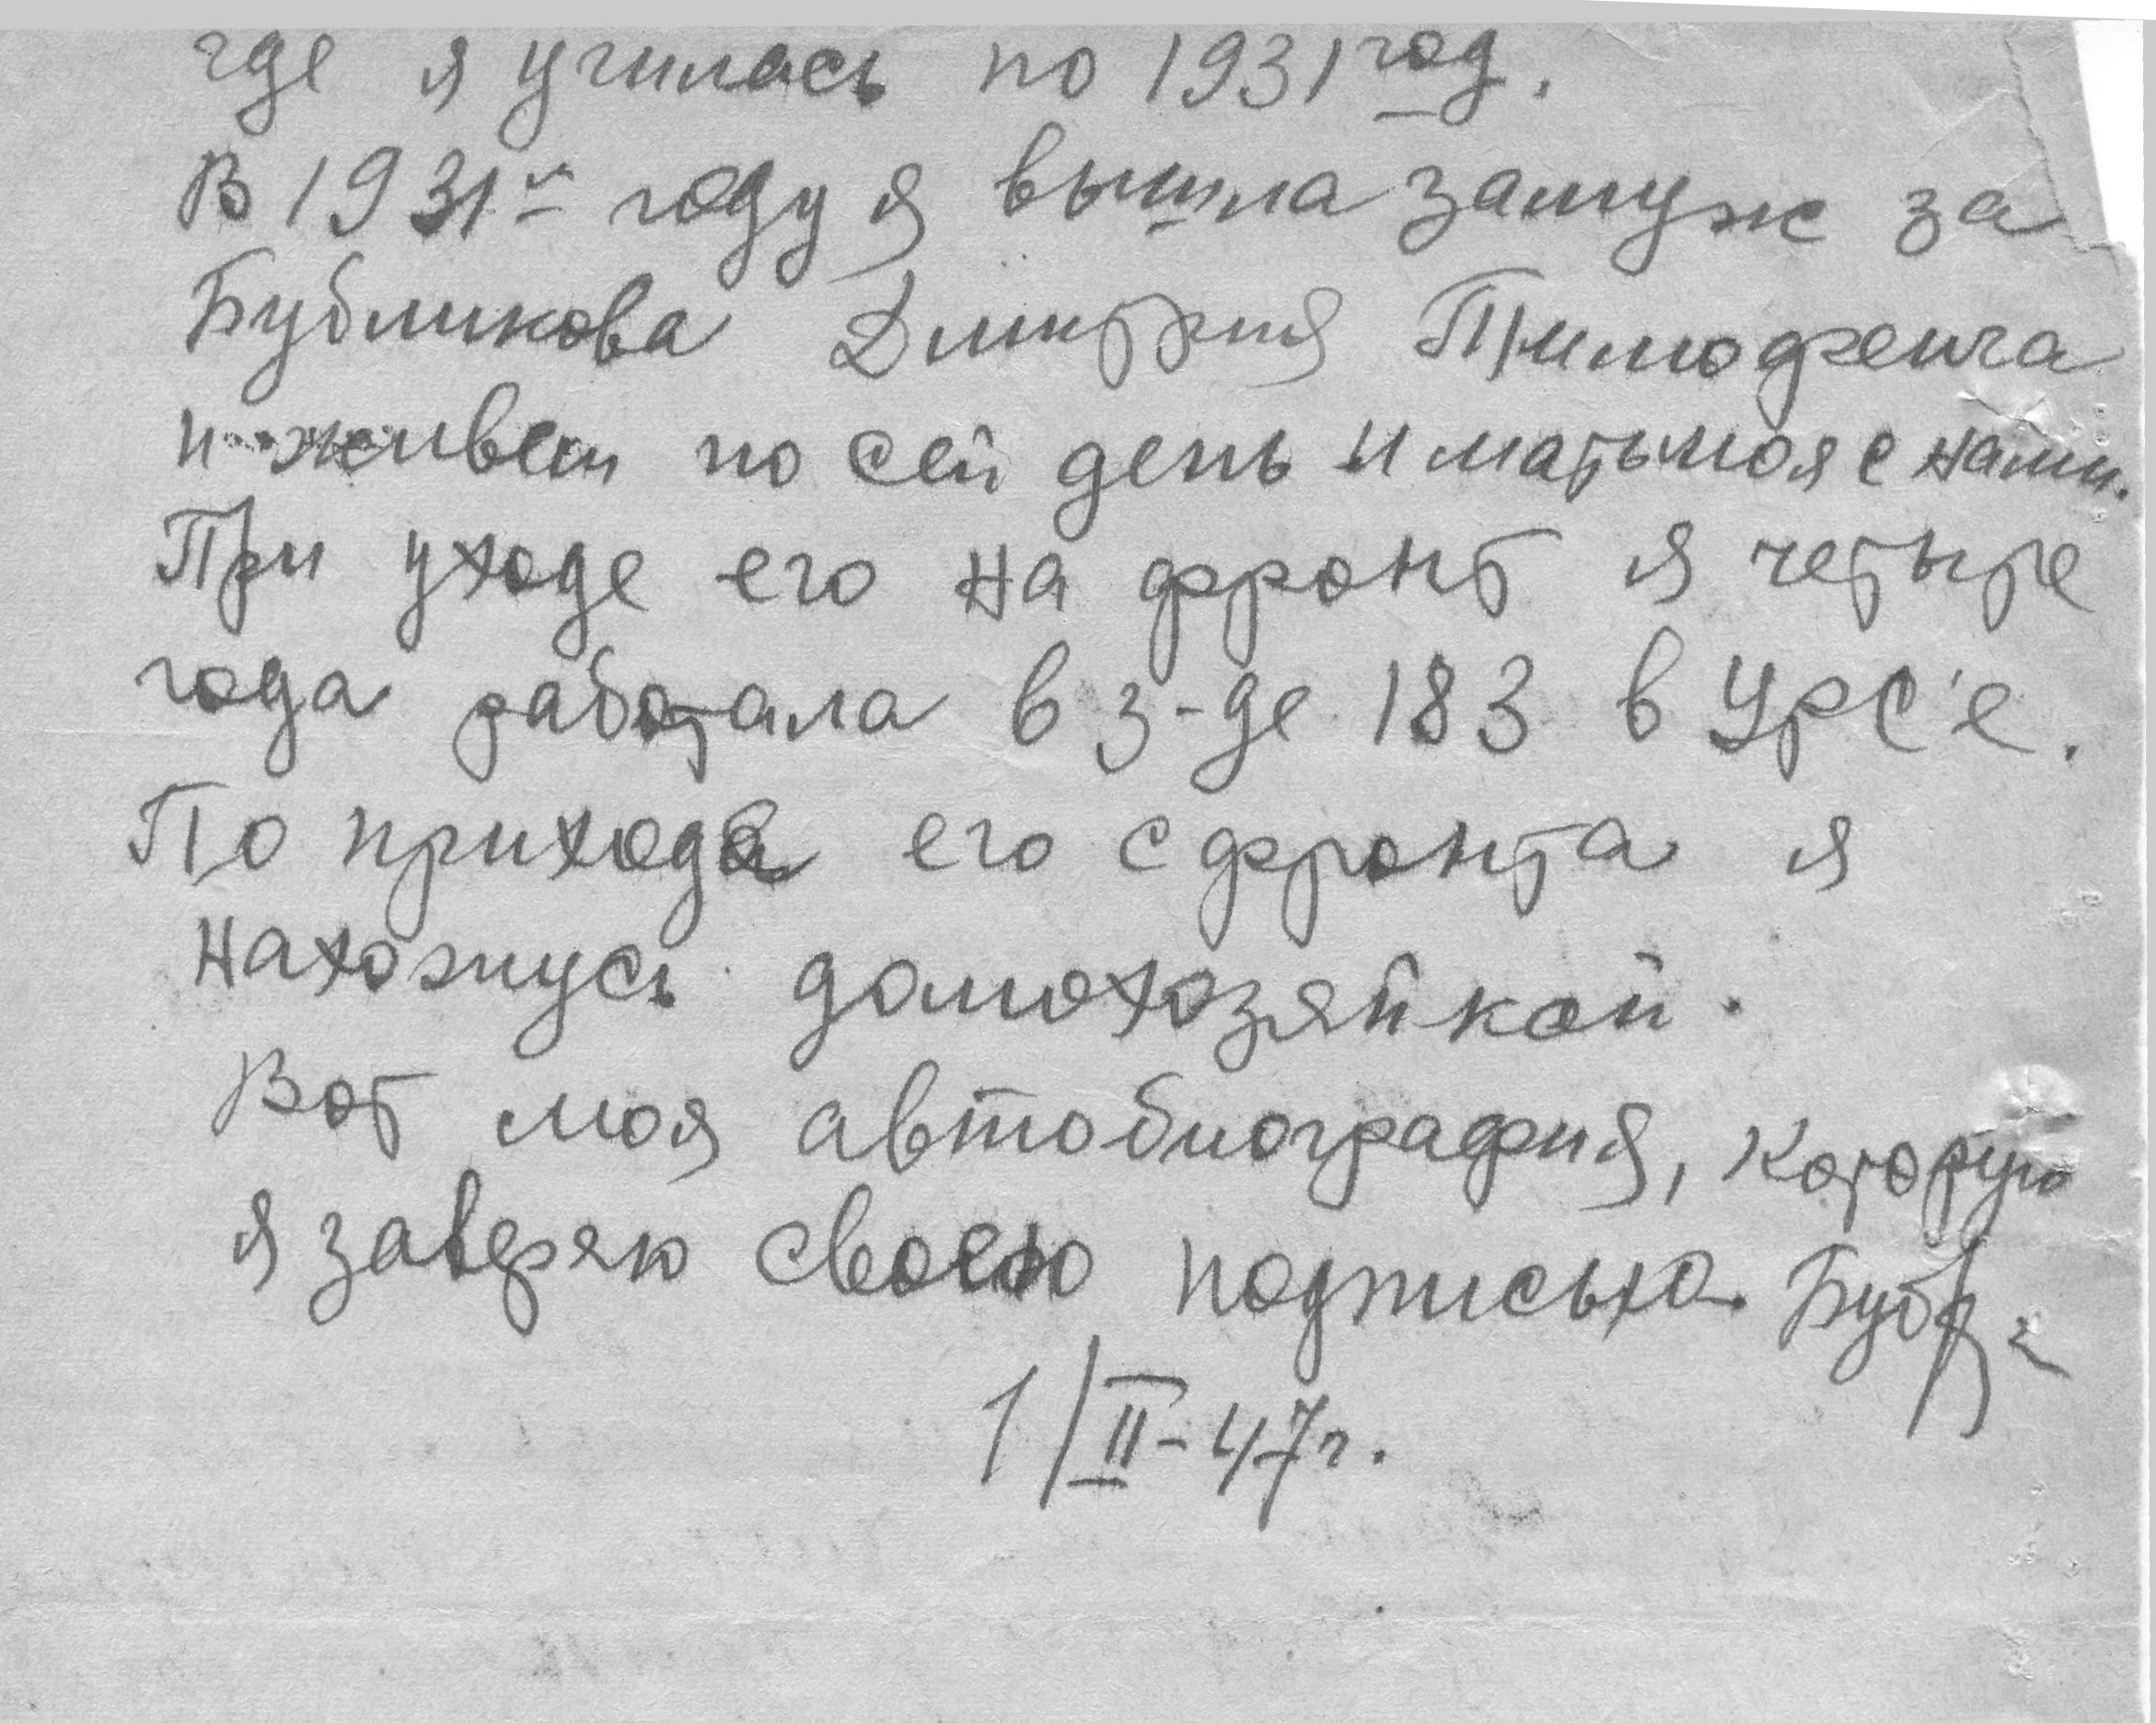 где я училась по 1931 год.
В 1931м году я вышла замуж за
Бубликова Дмитрия Тимофеича
и живем по сей день и мать моя с нами.
При уходе его на фронт я четыре
года работала в з-де 183 в Урс'е.
По приходе его с фронта я
нахожусь домохозяйкой.
Вот моя автобиография, которую
я заверяю своею подписью.
1/II-47г.